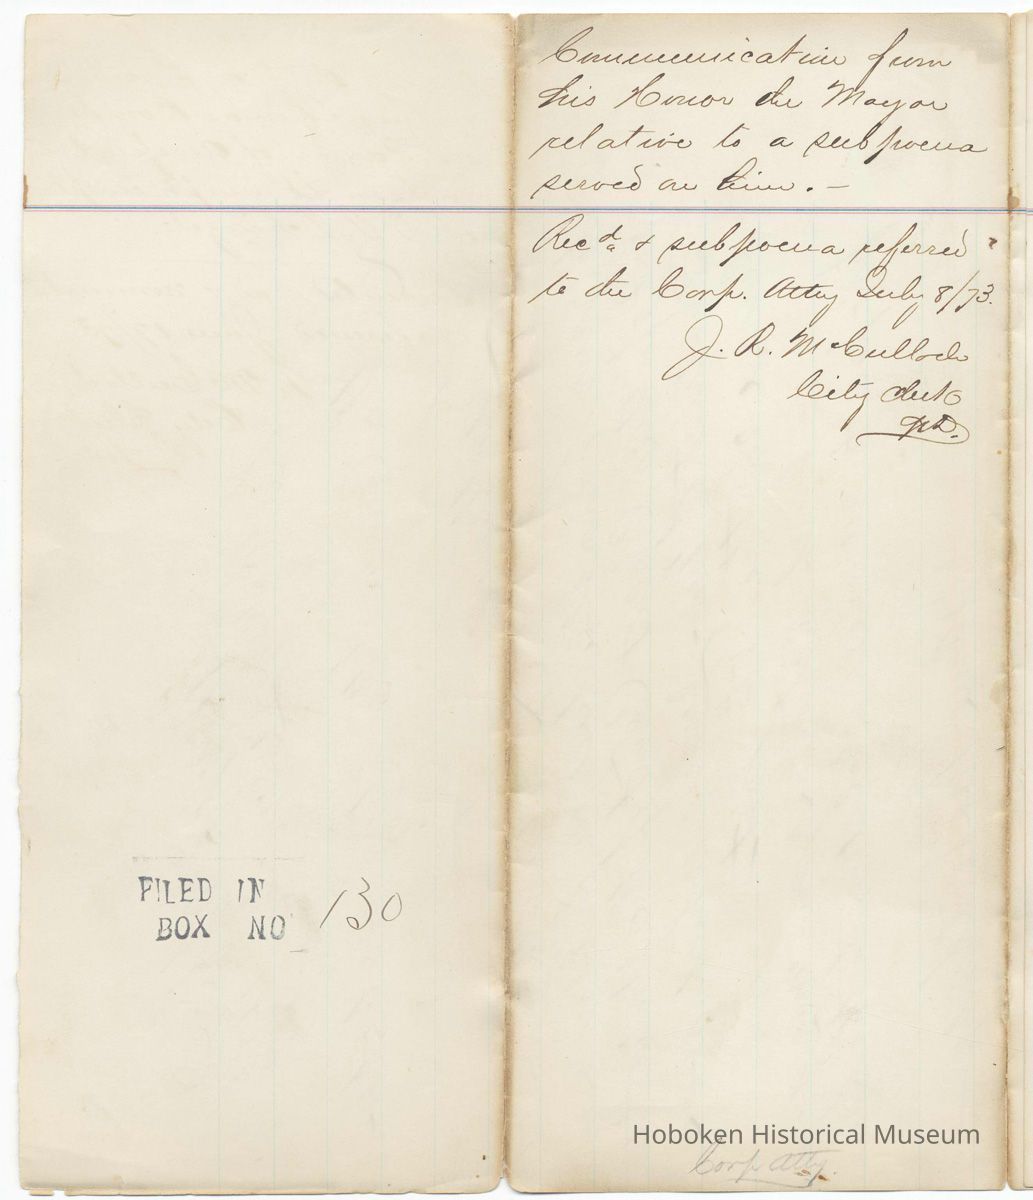 Communication from
his Honor the Mayor
relative to a subpoena
served on him. –
Recd & subpoena referred
to the Corp. Atty July 8/73.
J. R. McCulloch
City Clerk
FILED IN
BOX NO 130
Hoboken Historical Museum
Corp Atty.